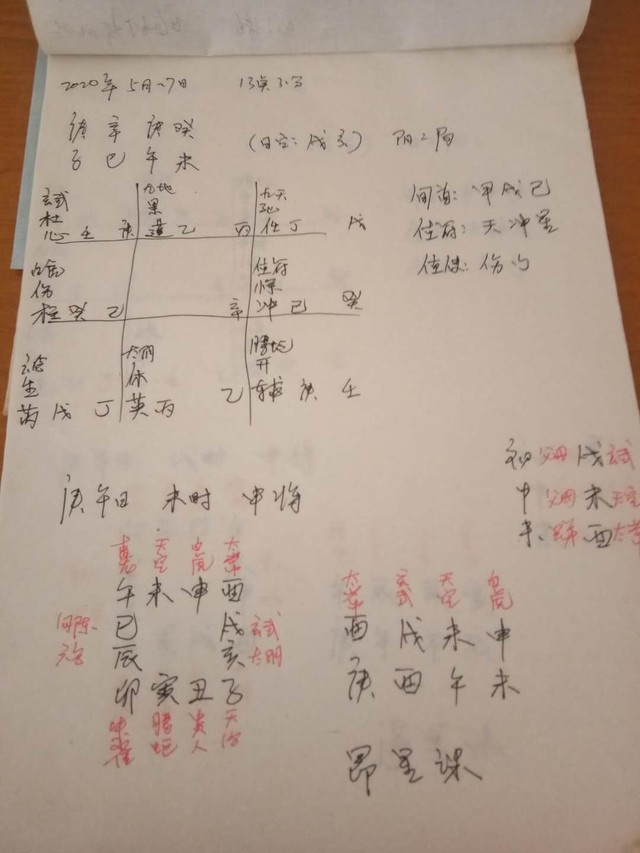 2020年5月27日 13点30分
庚 辛 庚 癸
子 巳 午 未
(日空:戌亥) 阳二局
玄武 九地 九天
杜 景 死
心 壬 庚 蓬 乙 丙 任 丁 戊
旬首:甲戌己
值符:天冲星
值使:伤门
白虎 值符
伤 惊
柱 癸 乙 辛 冲 己 癸
六合 太阴 腾蛇
生 休 开
芮 戊 丁 英 丙 乙 辅 庚 壬
初 父母 戌 玄武
中 父母 未 天空
末 兄弟 酉 太常
庚午日 未时 申将
青龙 天空 白虎 太常
午 未 申 酉
勾陈 巳 戌 玄武
六合 辰 亥 太阴
卯 寅 丑 子
朱雀 腾蛇 贵人 天后
太常 玄武 天空 白虎
酉 戌 未 申
庚 酉 午 未
昴星课